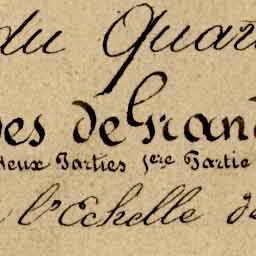 du Quar
des de Grand
deux Parties 1ere Partie
l'Echelle de